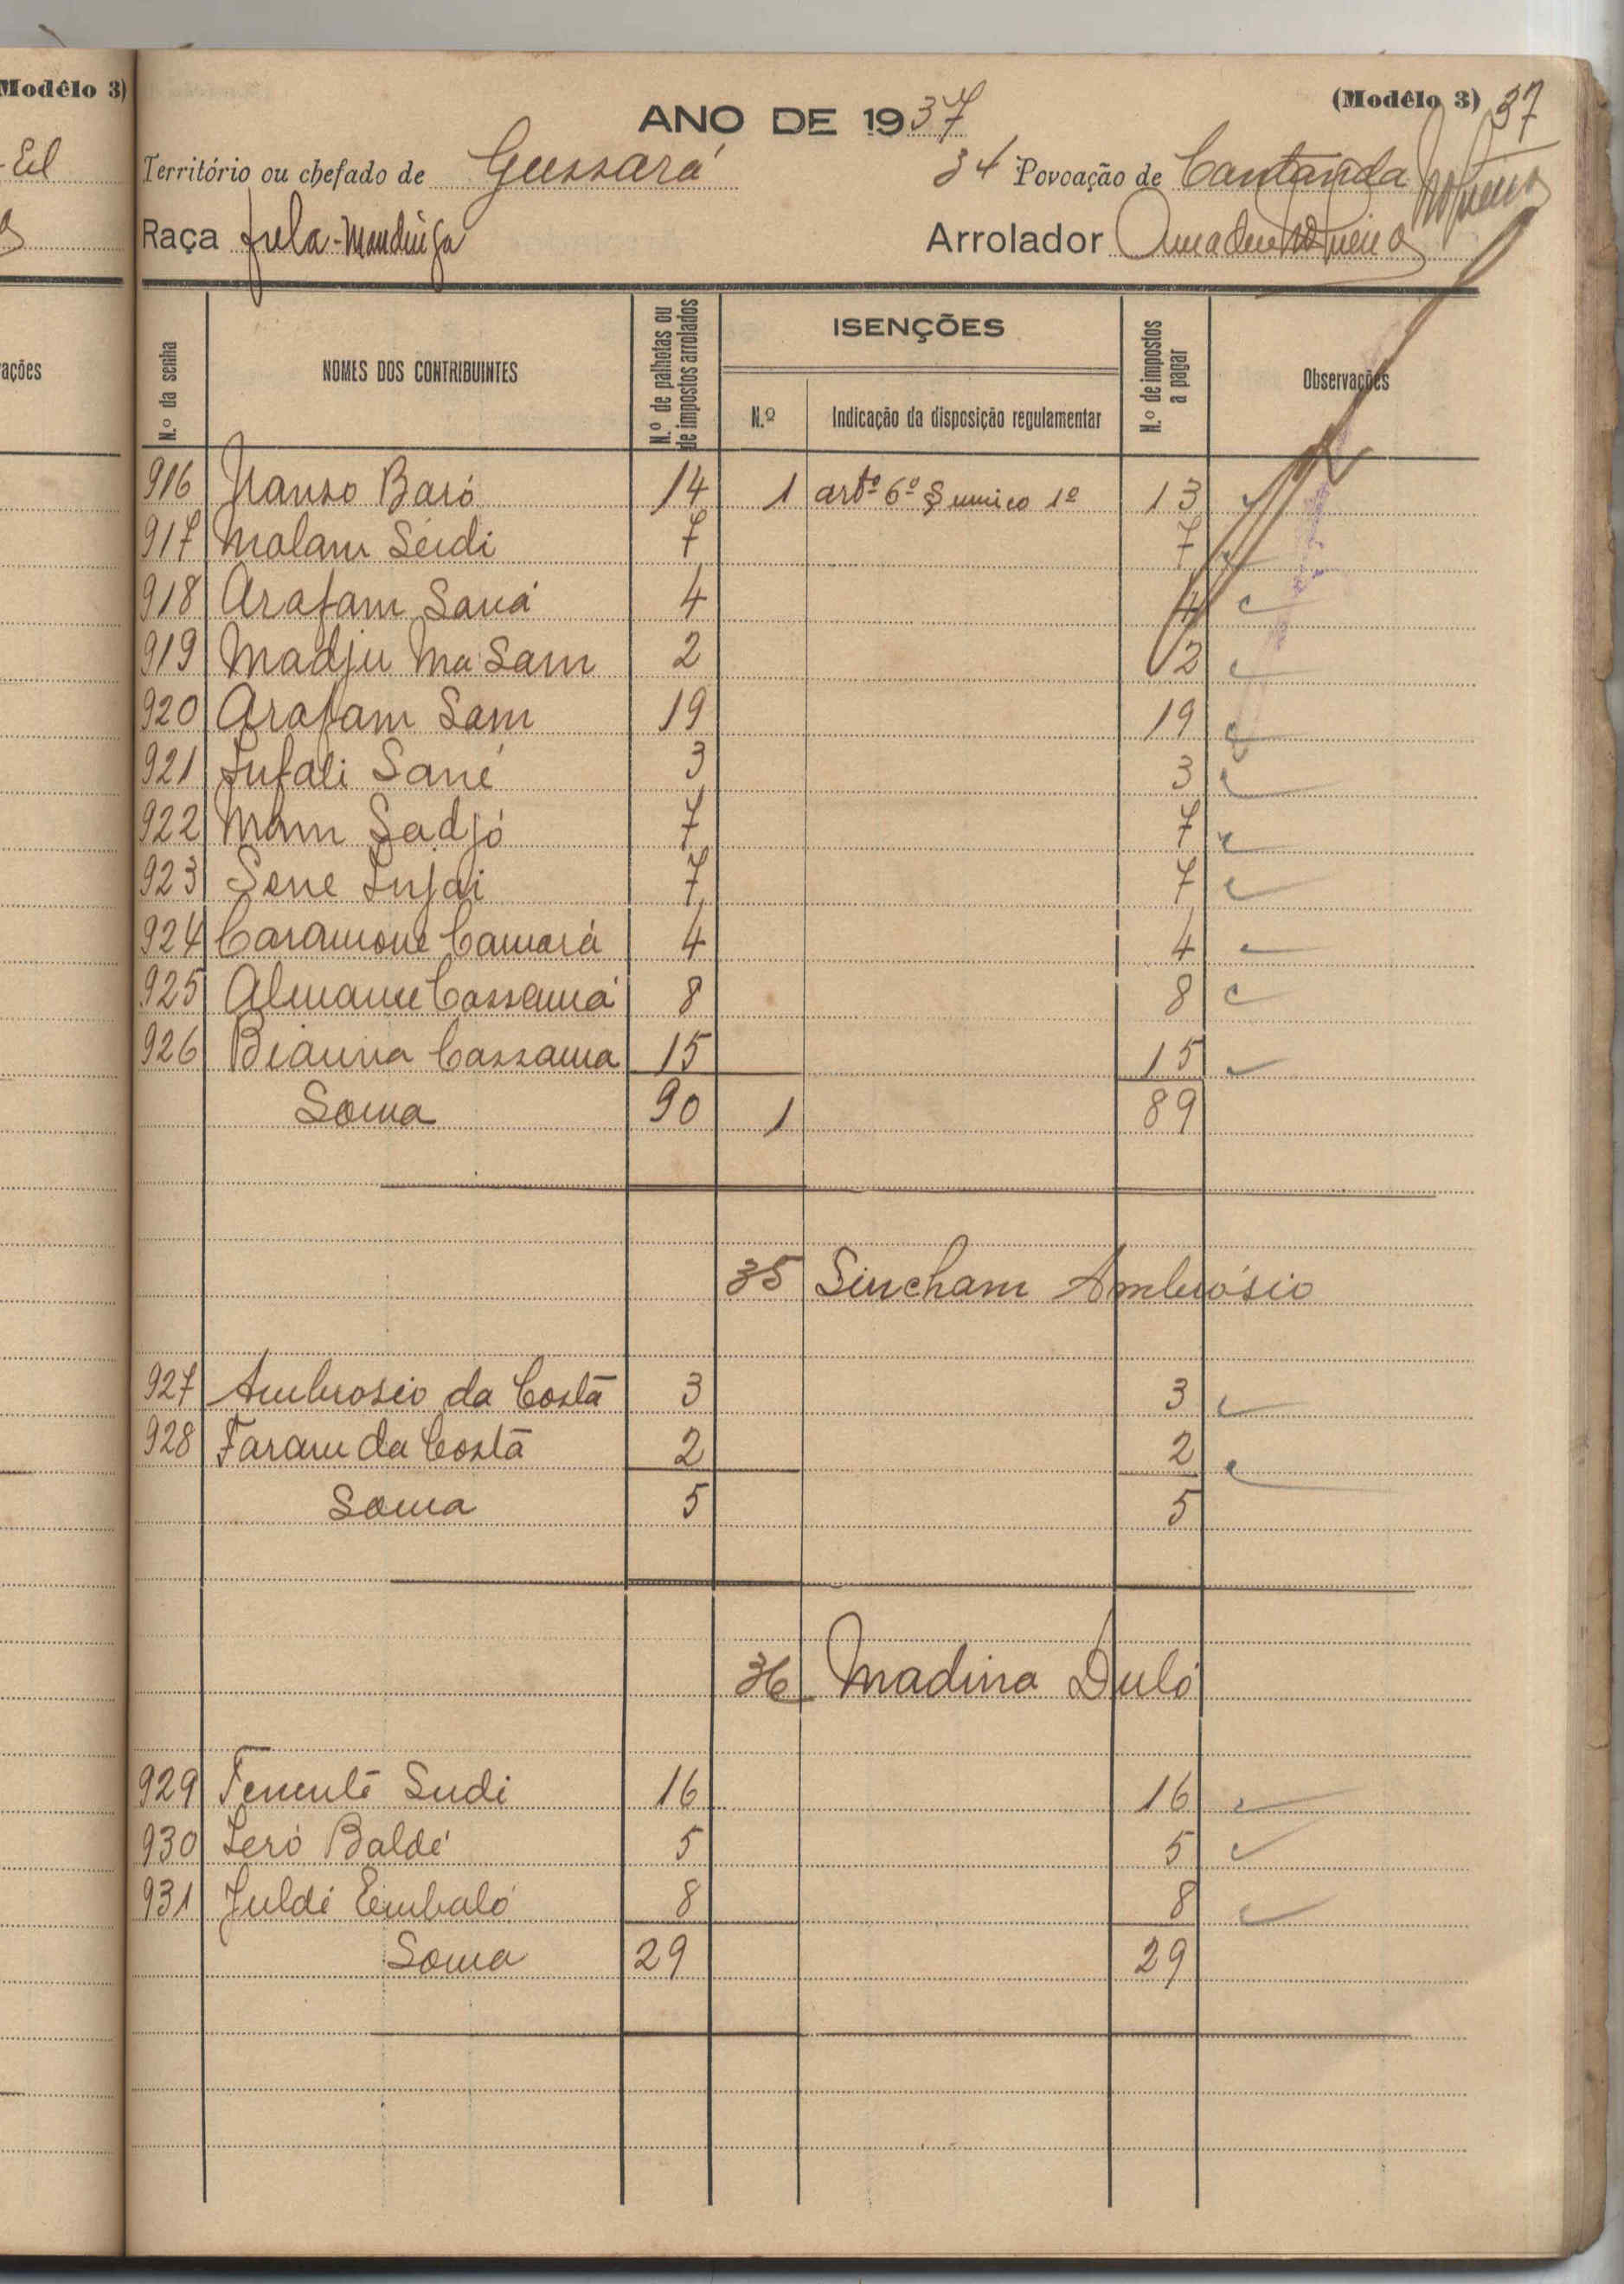 Modêlo 3)
(Modêlo 3) 37
ANO DE 1937
Território ou chefado de Gussará 34 Povoação de Cantanda
Raça fula-Mandinga Arrolador Amadeu Nogueira
ações
N.º da senha
NOMES DOS CONTRIBUINTES
N.º de palhotas ou de impostos arrolados
ISENÇÕES
N.º
Indicação da disposição regulamentar
N.º de impostos a pagar
Observações
916 Nanso Baió 14 1 artº 6º § unico 1º 13
917 Malam Seidi 7 7
918 Arafam Saná 4 4
919 Madju Ma Sam 2 2
920 Arafam Sam 19 19
921 Lufali Sané 3 3
922 Mam Sadjó 7 7
923 Sene Injai 7 7
924 Caramone Camará 4 4
925 Almame Cassamá 8 8
926 Bianna Cassama 15 15
Soma 90 1 89
35 Sincham Ambrósio
927 Ambrosio da Costa 3 3
928 Faram da Costa 2 2
Soma 5 5
36 Madina Duló
929 Sudi 16 16
930 Seró Baldé 5 5
931 Juldé Embaló 8 8
Soma 29 29